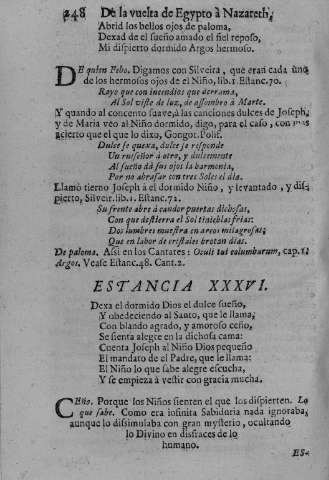 248 De la vuelta de Egypto à Nazareth,
Abrid los bellos ojos de paloma,
Dexad de el sueño amado el fiel reposo,
Mi dispierto dormido Argos hermoso.
DE quien Febo. Digamos con Silveira, que eran cada uno
de los hermosos ojos de el Niño, lib. 1. Estanc. 70.
Rayo que con incendios que derrama,
Al Sol viste de luz, de assombro à Marte.
Y quando al concento suave, à las canciones dulces de Joseph,
y de Maria veo al Niño dormido, digo, para el caso, con mas
acierto que el que lo dixo, Gongor. Polif.
Dulce se quexa, dulce je responde
Un ruiseñor à otro, y dulcemente
Al sueño dà sus ojos la harmonia,
Por no abrasar con tres Soles el dia.
Llamò tierno Joseph à el dormido Niño, y levantado, y dis-
pierto, Silveir. lib. 1. Estanc. 72.
Su frente abre à candor puertas dichosas,
Con que destierra el Sol tinieblas frias:
Dos lumbres muestra en arcos milagrosas,
Que en labor de cristales brotan dias.
De paloma. Assi en los Cantares: Oculi tui columbarum, cap. 1.
Argos. Vease Estanc. 48. Cant. 2.
ESTANCIA XXXVI.
Dexa el dormido Dios el dulce sueño,
Y obedeciendo al Santo, que le llama,
Con blando agrado, y amoroso ceño,
Se sienta alegre en la dichosa cama:
Cuenta Joseph al Niño Dios pequeño
El mandato de el Padre, que le llama:
El Niño lo que sabe alegre escucha,
Y se empieza à vestir con gracia mucha.
CEño. Porque los Niños sienten el que los dispierten. Lo
que sabe. Como era infinita Sabiduria nada ignoraba,
aunque lo dissimulaba con gran mysterio, ocultando
lo Divino en disfraces de lo
humano.
ES-